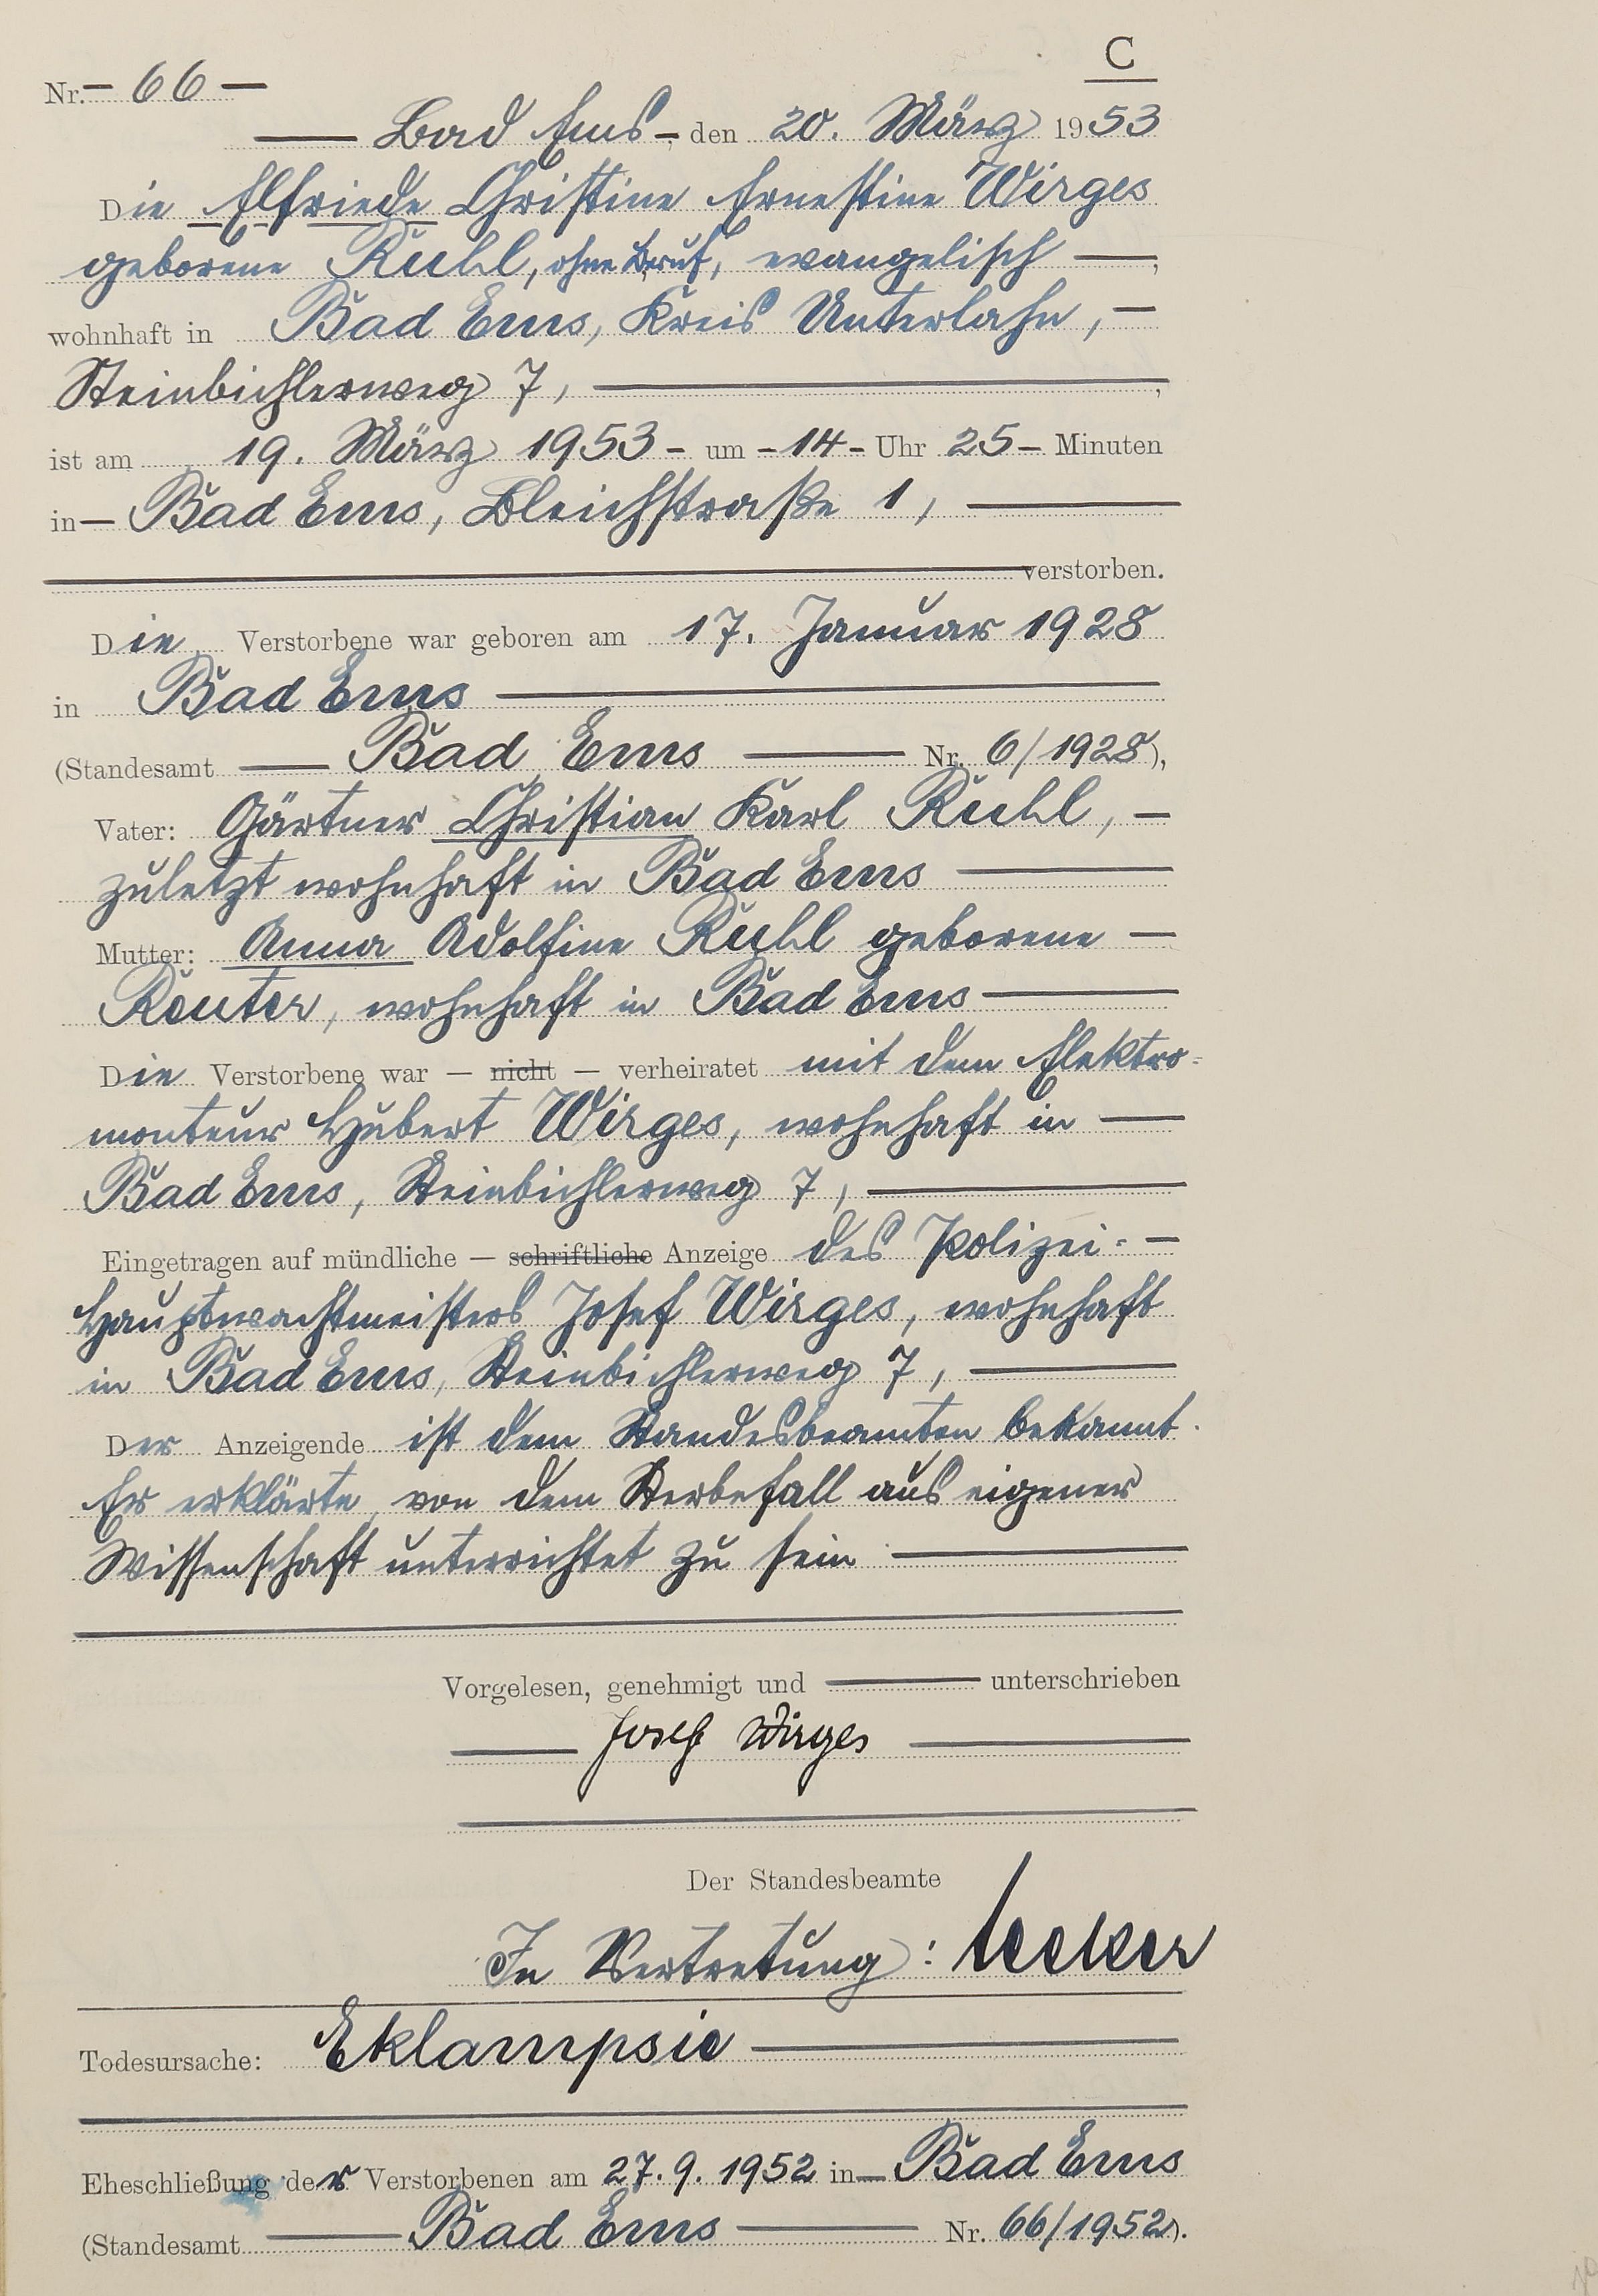 C
Nr. – 66 –
Bad Ems – , den 20. März 1953
Die Elfriede Christine Ernestine Wirges
geborene Ruhl, ohne Beruf, evangelisch –,
wohnhaft in Bad Ems, Kreis Unterlahn, –
Steinbichlerweg 7, –,
ist am 19. März 1953 – um – 14 – Uhr 25 – Minuten
in – Bad Ems, Bleichstraße 1, –
verstorben.
Die Verstorbene war geboren am 17. Januar 1928
in Bad Ems –
(Standesamt – Bad Ems – Nr. 6/1928),
Vater: Gärtner Christian Karl Ruhl, –
zuletzt wohnhaft in Bad Ems –
Mutter: Anna Adolfine Ruhl geborene –
Reuter, wohnhaft in Bad Ems –
Die Verstorbene war – nicht – verheiratet mit dem Elektro-
monteur Hubert Wirges, wohnhaft in –
Bad Ems, Steinbichlerweg 7, –
Eingetragen auf mündliche – schriftliche Anzeige des Polizei- –
Hauptwachtmeisters Josef Wirges, wohnhaft
in Bad Ems, Steinbichlerweg 7, –
Der Anzeigende ist dem Standesbeamten bekannt.
Er erklärte, von dem Sterbefall aus eigener
Wissenschaft unterrichtet zu sein –
Vorgelesen, genehmigt und – unterschrieben
Josef Wirges
Der Standesbeamte
In Vertretung:
Todesursache: Eklampsie –
Eheschließung der Verstorbenen am 27.9.1952 in – Bad Ems
(Standesamt – Bad Ems – Nr. 66/1952).